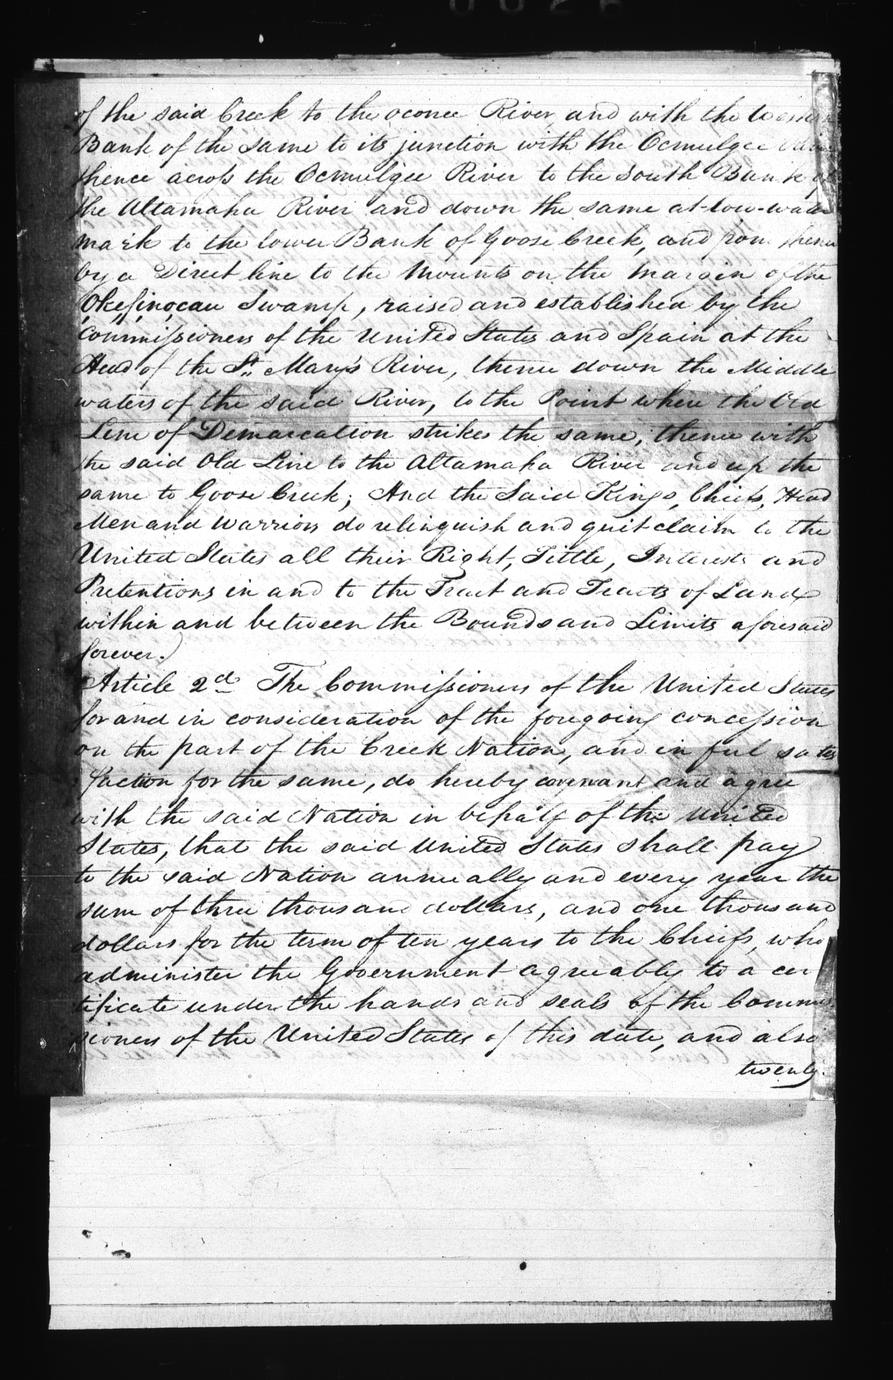 of the said Creek to the oconee River, and with the Western
Bank of the same to its junction with the Ocmulgee
thence across the Ocmulgee River to the South Bank of
the Altamaha River and down the same at low-water
mark to the lower Bank of Goose Creek, and from thence
by a Direct line to the Mounts on the Margin of the
Okefinocau Swamp, raised and established by the
Commissioners of the United States and Spain at the
Head of the St. Mary's River, thence down the Middle
waters of the said River, to the Point where the Old
Line of Demarcation strikes the same, thence with
the said Old Line to the Altamaha River and up the
same to Goose Creek; And the Said Kings, Chiefs, Head
Men and Warriors do relinquish and quit claim to the
United States all their Right, Tittle, Interests and
Pretentions in and to the Tract and Tracts of Land
within and between the Bounds and Limits aforesaid
forever.)
Article 2d The Commissioners of the United States
for and in consideration of the foregoing concession
on the part of the Creek Nation, and in full satis
faction for the same, do hereby covenant and agree
with the said Nation in behalf of the United
States, that the said United States shall pay
to the said Nation annually and every year the
sum of three thousand dollars, and one thousand
dollars for the term of ten years to the Chiefs, who
administer the Government agreeably to a cer
tificate under the hands and seals of the Commis
sioners of the United States of this date, and also
twenty